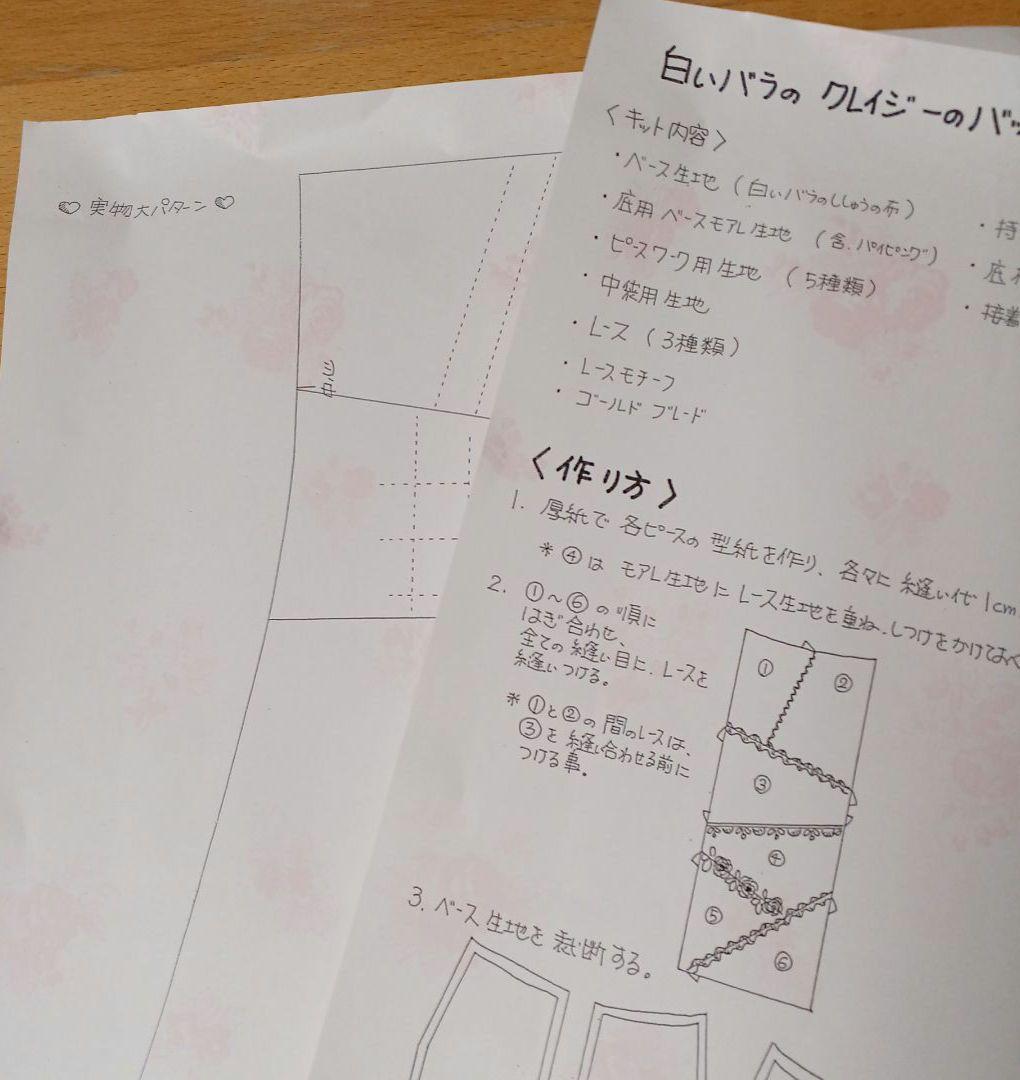 ♡ 実物大パターン ♡
中心
白いバラの クレイジーのバッ
〈キット内容〉
・ベース生地（白いバラのししゅうの布）
・底用 ベースモアレ生地 （含.パイピング）
・ピースワーク用生地 （5種類）
・中袋用生地
・レース（3種類）
・レースモチーフ
・ゴールド ブレード
・持
・底
・接着
〈作り方〉
1. 厚紙で 各ピースの 型紙を作り、各々に 縫い代 1cm
＊④は モアレ生地に レース生地を重ね、しつけをかけておく
2. ①～⑥ の 順に
はぎ合わせ、
全ての 縫い目に、レースを
縫いつける。
＊①と②の 間のレースは、
③を 縫い合わせる前に
つける事。
①
②
③
④
⑤
⑥
3. ベース生地を 裁断する。